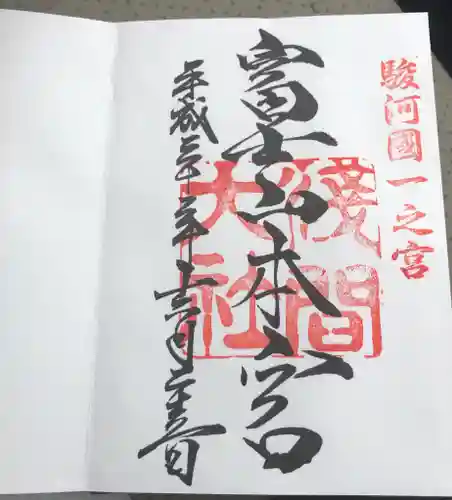 駿河國一之宮
富士山本宮
淺間
大社
平成三十年六月 日